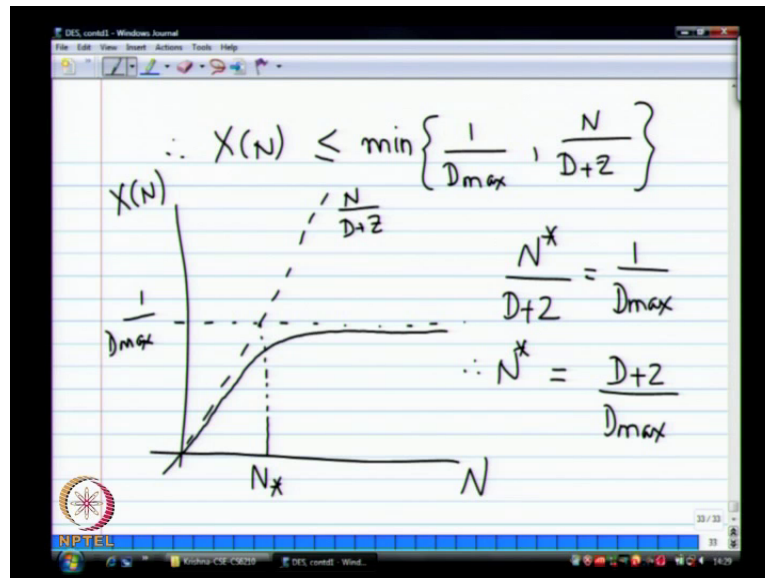 DES, contd1 - Windows Journal
File Edit View Insert Actions Tools Help
∴ X(N) ≤ min{ 1/Dmax , N/(D+Z) }
X(N)
N/(D+Z)
1/Dmax
N*/(D+Z) = 1/Dmax
∴ N* = (D+Z)/Dmax
N*
N
33 / 33
33
NPTEL
Krishna-CSE-CS6210
DES, contd1 - Wind...
14:29